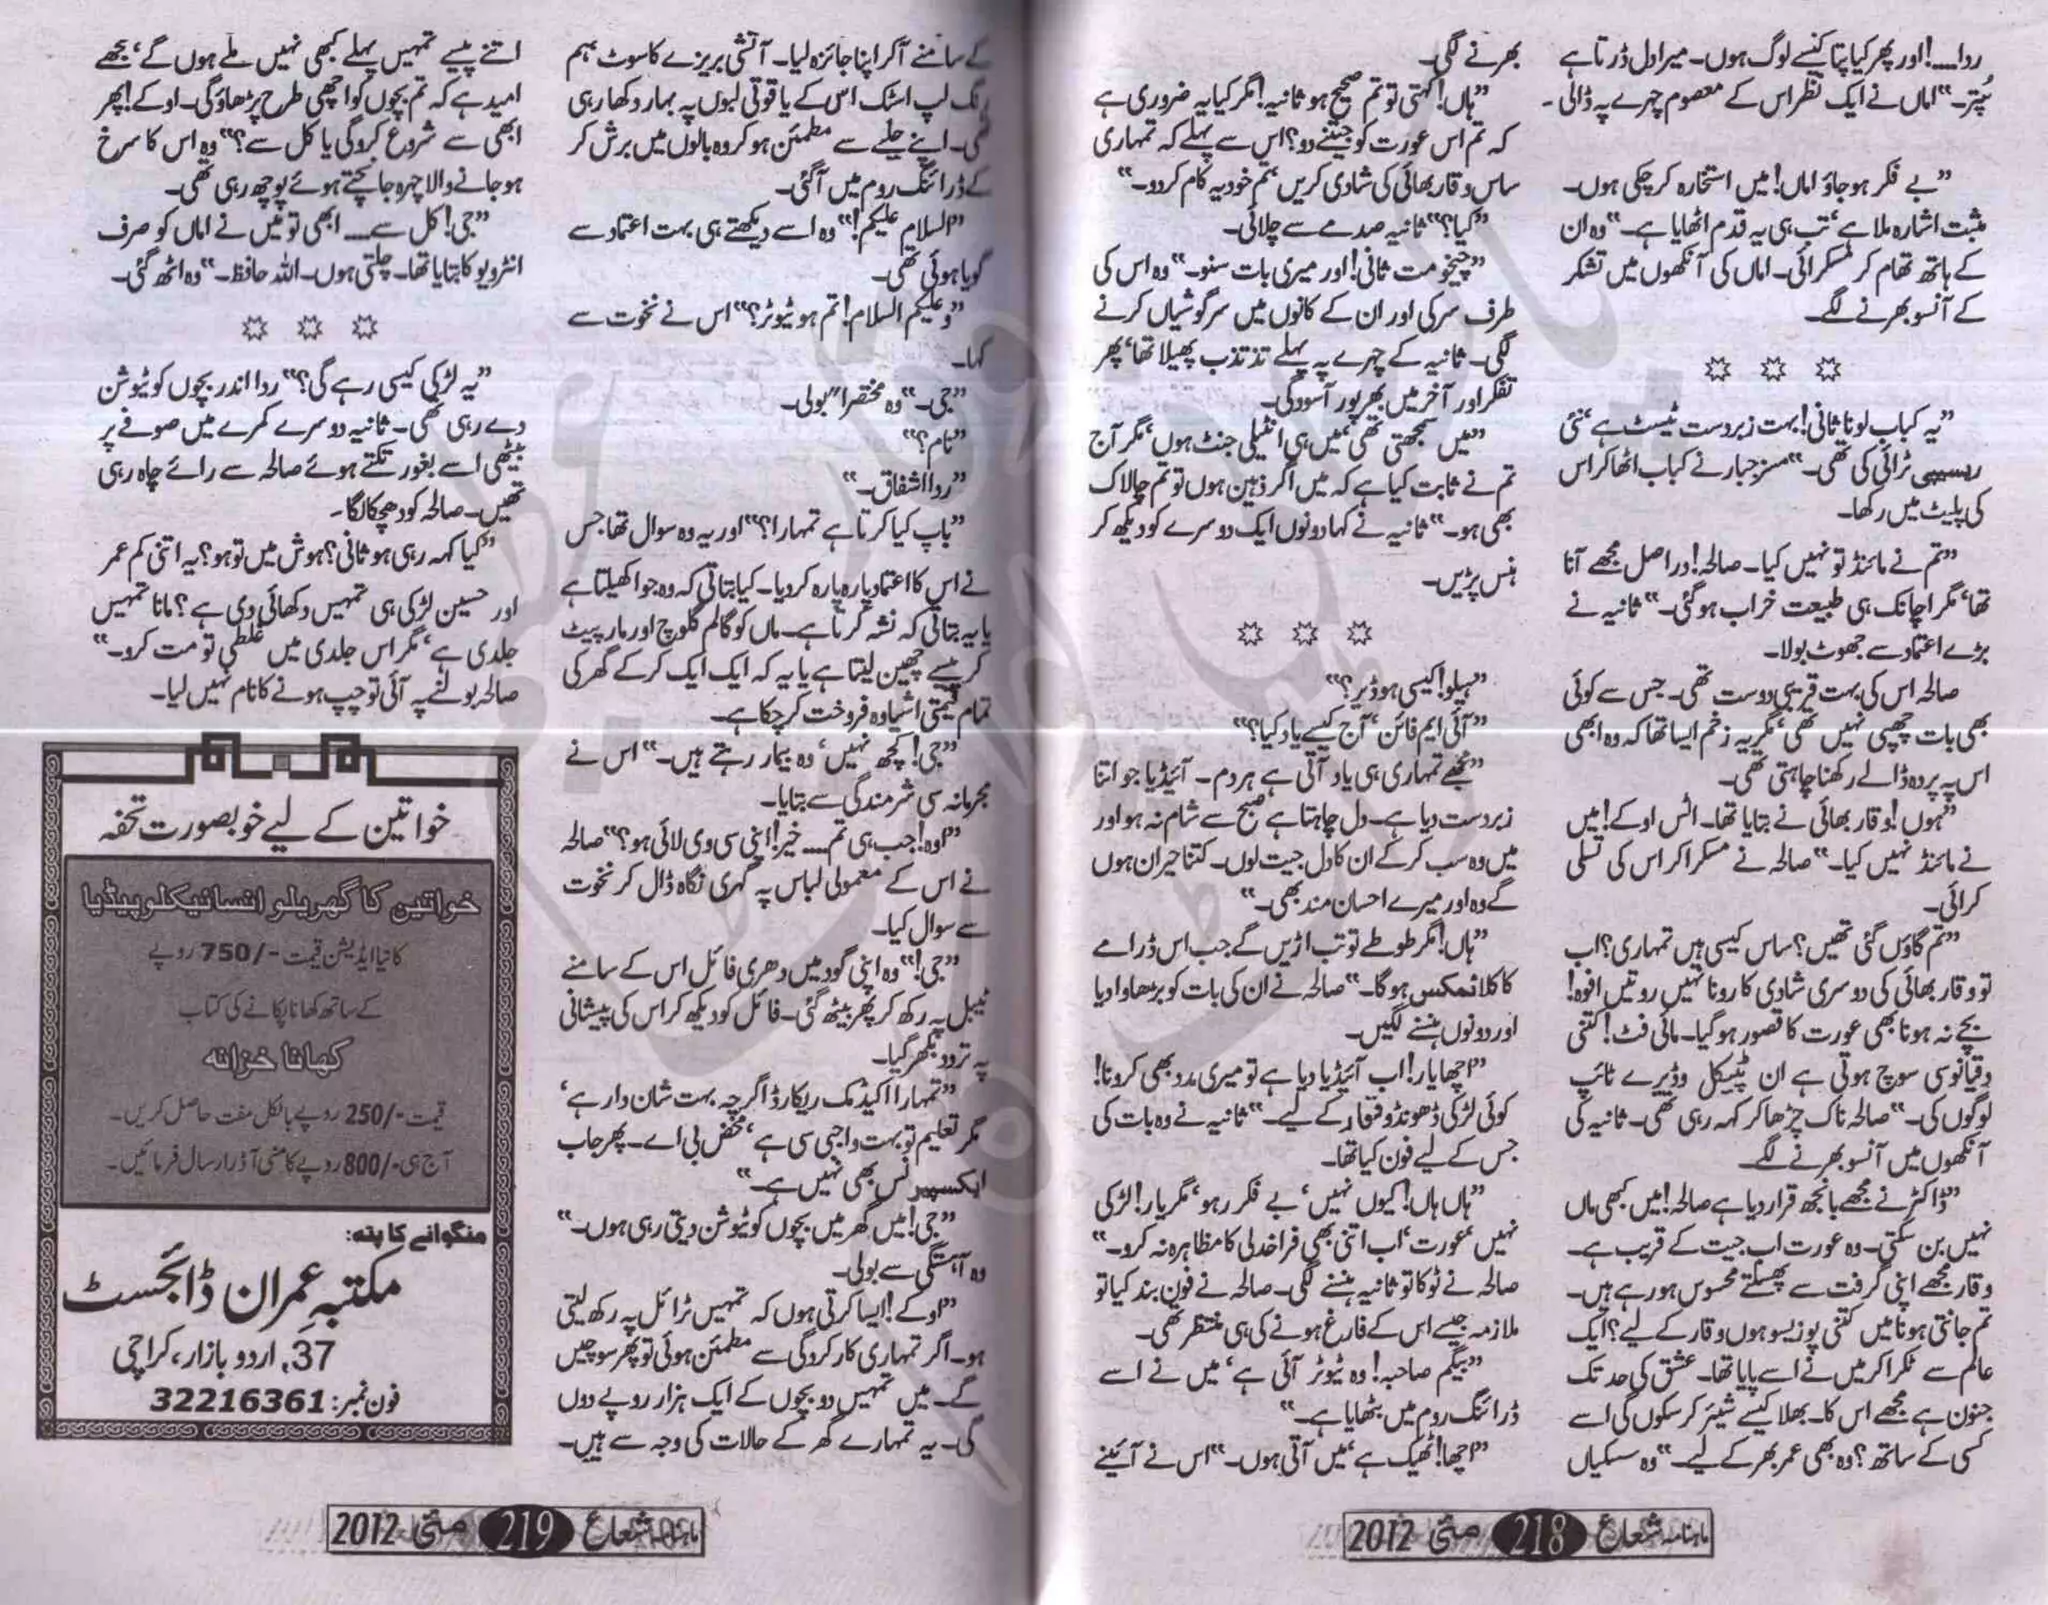 ردا....! اور پھر کیا پتا کیسے لوگ ہوں۔ میرا دل ڈرتا ہے
پُتر۔“ اماں نے ایک نظر اس کے معصوم چہرے پہ ڈالی۔
”بے فکر ہو جاؤ اماں! میں استخارہ کر چکی ہوں۔
مثبت اشارہ ملا ہے‘ تب ہی یہ قدم اٹھایا ہے۔“ وہ ان
کے ہاتھ تھام کر مسکرائی۔ اماں کی آنکھوں میں تشکر
کے آنسو بھرنے لگے۔
”یہ کباب لو نا ثانی! بہت زبردست ٹیسٹ ہے‘ نئی
ریسیپی ٹرائی کی تھی۔“ مسز جبار نے کباب اٹھا کر اس
کی پلیٹ میں رکھا۔
”تم نے مائنڈ تو نہیں کیا۔ صالحہ! دراصل مجھے آنا
تھا‘ مگر اچانک ہی طبیعت خراب ہو گئی۔“ ثانیہ نے
بڑے اعتماد سے جھوٹ بولا۔
صالحہ اس کی بہت قریبی دوست تھی۔ جس سے کوئی
بھی بات چھپی نہیں تھی‘ مگر یہ زخم ایسا تھا کہ وہ ابھی
اس پہ پردہ ڈالے رکھنا چاہتی تھی۔
”ہوں! وقار بھائی نے بتایا تھا۔ اٹس اوکے! میں
نے مائنڈ نہیں کیا۔“ صالحہ نے مسکرا کر اس کی تسلی
کرائی۔
”تم گاؤں گئی تھیں؟ ساس کیسی ہیں تمہاری؟ اب
تو وقار بھائی کی دوسری شادی کا رونا نہیں روتیں افوہ!
بچے نہ ہونا بھی عورت کا قصور ہو گیا۔ مائی فٹ! کتنی
دقیانوسی سوچ ہوتی ہے ان ٹیپیکل وڈیرے ٹائپ
لوگوں کی۔“ صالحہ ناک چڑھا کر کہہ رہی تھی۔ ثانیہ کی
آنکھوں میں آنسو بھرنے لگے۔
”ڈاکٹر نے مجھے بانجھ قرار دیا ہے صالحہ! میں کبھی ماں
نہیں بن سکتی۔ وہ عورت اب جیت کے قریب ہے۔
وقار مجھے اپنی گرفت سے پھسلتے محسوس ہو رہے ہیں۔
تم جانتی ہو نا میں کتنی پوزیسو ہوں وقار کے لیے؟ ایک
عالم سے ٹکرا کر میں نے اسے پایا تھا۔ عشق کی حد تک
جنون ہے مجھے اس کا۔ بھلا کیسے شیئر کر سکوں گی اسے
کسی کے ساتھ؟ وہ بھی عمر بھر کے لیے۔“ وہ سسکیاں
بھرنے لگی۔
”ہاں! کہتی تو تم صحیح ہو ثانیہ! مگر کیا یہ ضروری ہے
کہ تم اس عورت کو جیتنے دو؟ اس سے پہلے کہ تمہاری
ساس وقار بھائی کی شادی کریں‘ تم خود یہ کام کر دو۔“
”کیا؟“ ثانیہ صدمے سے چلائی۔
”چیخو مت ثانی! اور میری بات سنو۔“ وہ اس کی
طرف سرکی اور ان کے کانوں میں سرگوشیاں کرنے
لگی۔ ثانیہ کے چہرے پہ پہلے تذبذب پھیلا تھا‘ پھر
تفکر اور آخر میں بھرپور آسودگی۔
”میں سمجھتی تھی‘ میں ہی انٹیلی جنٹ ہوں‘ مگر آج
تم نے ثابت کیا ہے کہ میں اگر ذہین ہوں تو تم چالاک
بھی ہو۔“ ثانیہ نے کہا دونوں ایک دوسرے کو دیکھ کر
ہنس پڑیں۔
”ہیلو! کیسی ہو ڈیر؟“
”آئی ایم فائن‘ آج کیسے یاد کیا؟“
”مجھے تمہاری ہی یاد آتی ہے ہر دم۔ آئیڈیا جو اتنا
زبردست دیا ہے۔ دل چاہتا ہے صبح سے شام نہ ہو اور
میں وہ سب کر کے ان کا دل جیت لوں۔ کتنا حیران ہوں
گے وہ اور میرے احسان مند بھی۔“
”ہاں! مگر طوطے تو تب اڑیں گے جب اس ڈرامے
کا کلائمکس ہو گا۔“ صالحہ نے ان کی بات کو بڑھاوا دیا
اور دونوں ہنسنے لگیں۔
”اچھا یار! اب آئیڈیا دیا ہے تو میری مدد بھی کرو نا!
کوئی لڑکی ڈھونڈو وقار کے لیے۔“ ثانیہ نے وہ بات کی
جس کے لیے فون کیا تھا۔
”ہاں ہاں! کیوں نہیں‘ بے فکر رہو‘ مگر یار! لڑکی
نہیں‘ عورت‘ اب اتنی بھی فراخدلی کا مظاہرہ نہ کرو۔“
صالحہ نے ٹوکا تو ثانیہ ہنسنے لگی۔ صالحہ نے فون بند کیا تو
ملازمہ جیسے اس کے فارغ ہونے کی ہی منتظر تھی۔
”بیگم صاحبہ! وہ ٹیوٹر آئی ہے‘ میں نے اسے
ڈرائنگ روم میں بٹھایا ہے۔“
”اچھا! ٹھیک ہے‘ میں آتی ہوں۔“ اس نے آئینے
ماہنامہ شعاع 218 مئی 2012
کے سامنے آ کر اپنا جائزہ لیا۔ آتشی بریزے کا سوٹ‘ ہم
رنگ لپ اسٹک اس کے یاقوتی لبوں پہ بہار دکھا رہی
تھی۔ اپنے حلیے سے مطمئن ہو کر وہ بالوں میں برش کر
کے ڈرائنگ روم میں آ گئی۔
”السلام علیکم!“ وہ اسے دیکھتے ہی بہت اعتماد سے
گویا ہوئی تھی۔
”وعلیکم السلام! تم ہو ٹیوٹر؟“ اس نے نخوت سے
کہا۔
”جی۔“ وہ مختصراً بولی۔
”نام؟“
”ردا اشفاق۔“
”باپ کیا کرتا ہے تمہارا؟“ اور یہ وہ سوال تھا جس
نے اس کا اعتماد پارہ پارہ کر دیا۔ کیا بتاتی کہ وہ جوا کھیلتا ہے
یا یہ بتاتی کہ نشہ کرتا ہے۔ ماں کو گالم گلوچ اور مار پیٹ
کر پیسے چھین لیتا ہے یا یہ کہ ایک ایک کر کے گھر کی
تمام قیمتی اشیا وہ فروخت کر چکا ہے۔
”جی! کچھ نہیں‘ وہ بیمار رہتے ہیں۔“ اس نے
مجرمانہ سی شرمندگی سے بتایا۔
”اوہ! جب ہی تم.... خیر! اپنی سی وی لائی ہو؟“ صالحہ
نے اس کے معمولی لباس پہ گہری نگاہ ڈال کر نخوت
سے سوال کیا۔
”جی!“ وہ اپنی گود میں دھری فائل اس کے سامنے
ٹیبل پہ رکھ کر پھر بیٹھ گئی۔ فائل کو دیکھ کر اس کی پیشانی
پہ تردد بکھر گیا۔
”تمہارا اکیڈمک ریکارڈ اگرچہ بہت شان دار ہے‘
مگر تعلیم تو بہت واجبی سی ہے‘ محض بی اے۔ پھر جاب
ایکسپیرنس بھی نہیں ہے۔“
”جی! میں گھر میں بچوں کو ٹیوشن دیتی رہی ہوں۔“
وہ آہستگی سے بولی۔
”اوکے! ایسا کرتی ہوں کہ تمہیں ٹرائل پہ رکھ لیتی
ہو۔ اگر تمہاری کارکردگی سے مطمئن ہوئی تو پھر سوچیں
گے۔ میں تمہیں دو بچوں کے ایک ہزار روپے دوں
گی۔ یہ تمہارے گھر کے حالات کی وجہ سے ہیں۔
اتنے پیسے تمہیں پہلے کبھی نہیں ملے ہوں گے‘ مجھے
امید ہے کہ تم بچوں کو اچھی طرح پڑھاؤ گی۔ اوکے! پھر
ابھی سے شروع کرو گی یا کل سے؟“ وہ اس کا سرخ
ہو جانے والا چہرہ جانچتے ہوئے پوچھ رہی تھی۔
”جی! کل سے.... ابھی تو میں نے اماں کو صرف
انٹرویو کا بتایا تھا۔ چلتی ہوں۔ اللہ حافظ۔“ وہ اٹھ گئی۔
”یہ لڑکی کیسی رہے گی؟“ ردا اندر بچوں کو ٹیوشن
دے رہی تھی۔ ثانیہ دوسرے کمرے میں صوفے پر
بیٹھی اسے بغور تکتے ہوئے صالحہ سے رائے چاہ رہی
تھیں۔ صالحہ کو دھچکا لگا۔
”کیا کہہ رہی ہو ثانی؟ ہوش میں تو ہو؟ یہ اتنی کم عمر
اور حسین لڑکی ہی تمہیں دکھائی دی ہے؟ مانا تمہیں
جلدی ہے‘ مگر اس جلدی میں غلطی تو مت کرو۔“
صالحہ بولنے پہ آئی تو چپ ہونے کا نام نہیں لیا۔
خواتین کے لیے خوبصورت تحفہ
خواتین کا گھریلو انسائیکلوپیڈیا
کا نیا ایڈیشن قیمت -/750 روپے
کے ساتھ کھانا پکانے کی کتاب
کھانا خزانہ
قیمت -/250 روپے بالکل مفت حاصل کریں۔
آج ہی -/800 روپے کا منی آڈر ارسال فرمائیں۔
منگوانے کا پتہ:
مکتبہ عمران ڈائجسٹ
37, اردو بازار، کراچی
فون نمبر: 32216361
ماہنامہ شعاع 219 مئی 2012